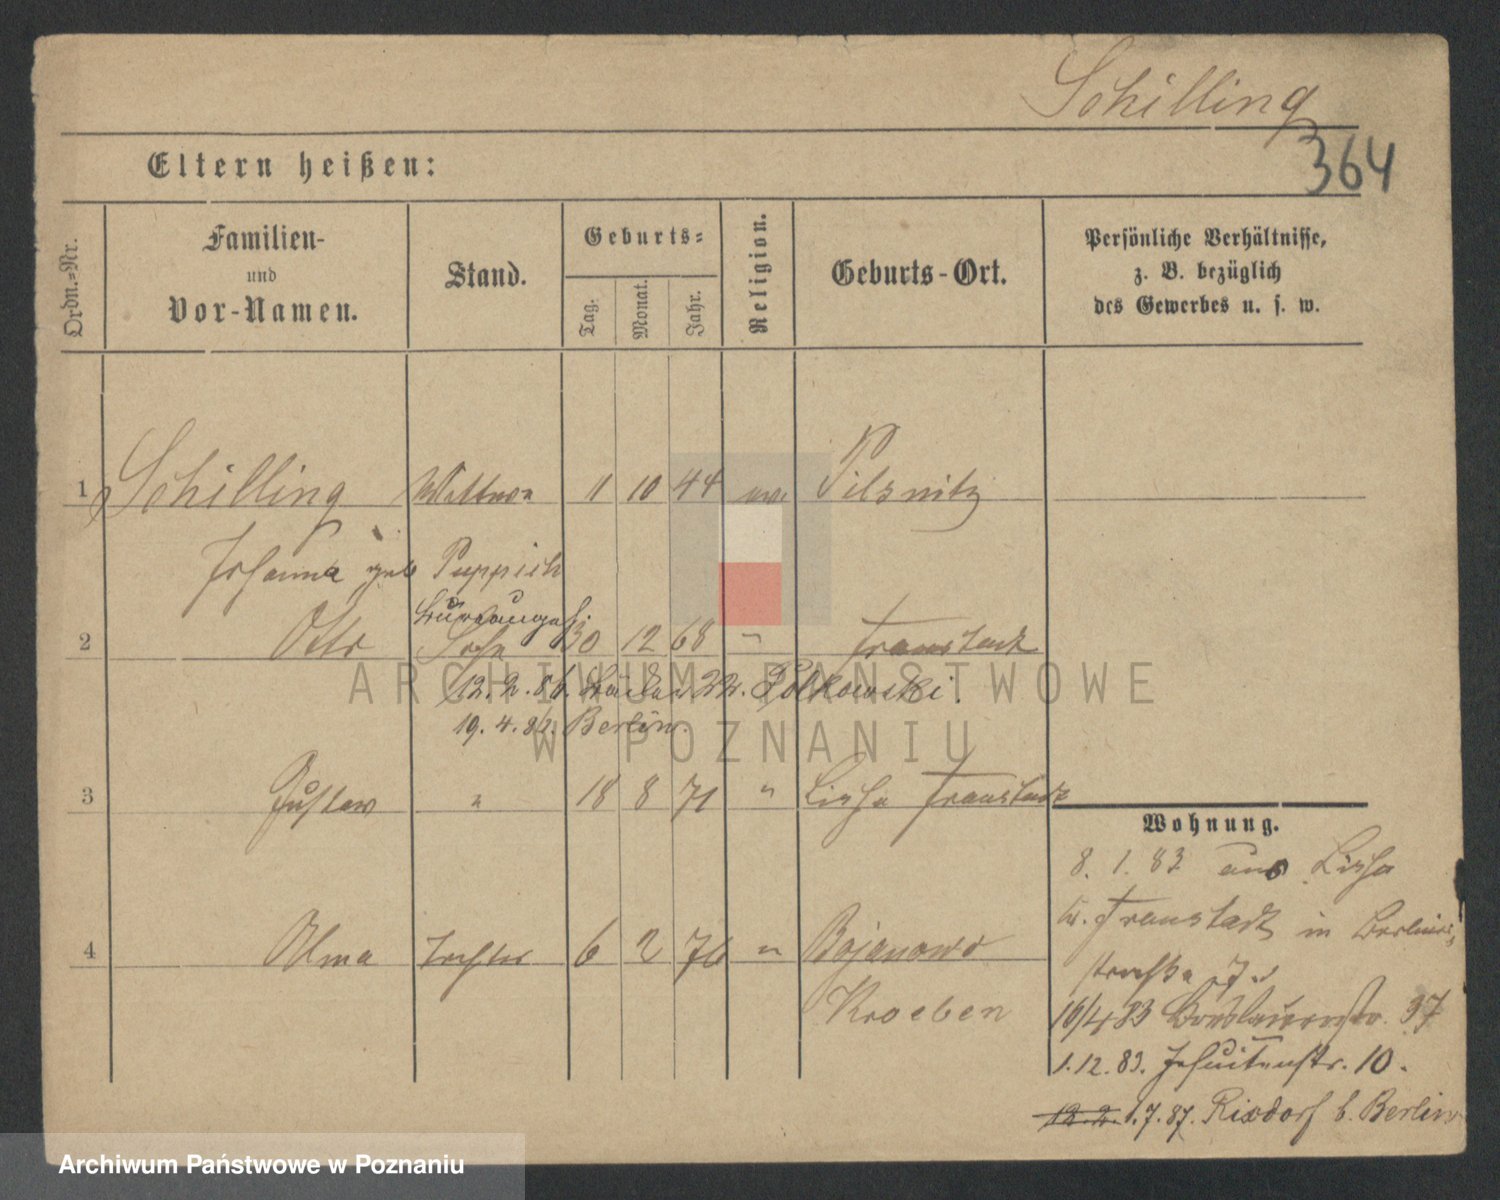 Schilling
364
Eltern heißen:
Ordn.-Nr.
Familien-
und
Vor-Namen.
Stand.
Geburts-
Tag.
Monat.
Jahr.
Religion.
Geburts-Ort.
Persönliche Verhältnisse,
z. B. bezüglich
des Gewerbes u. s. w.
1 Schilling Wittwe 11 10 44 ev. Pilsnitz
Johanna geb Puppich
2 Otto Sohn 30 12 68 " Fraustadt
12. 2. 86. 22. Polkowski.
19. 4. 86. Berlin.
3 Gustav " 18 8 71 " Lissa Fraustadt
4 Alma Tochter 6 2 76 " Bojanowo
Kroeben
Wohnung.
8. 1. 83 aus Lissa
Kr. Fraustadt in Berliner
straße 7
16/4 83 Breslauerstr. 37
1. 12. 83. Jesuitenstr. 10.
12. 2. 1. 7. 87. Rixdorf b. Berlin
ARCHIWUM PAŃSTWOWE
W POZNANIU
Archiwum Państwowe w Poznaniu